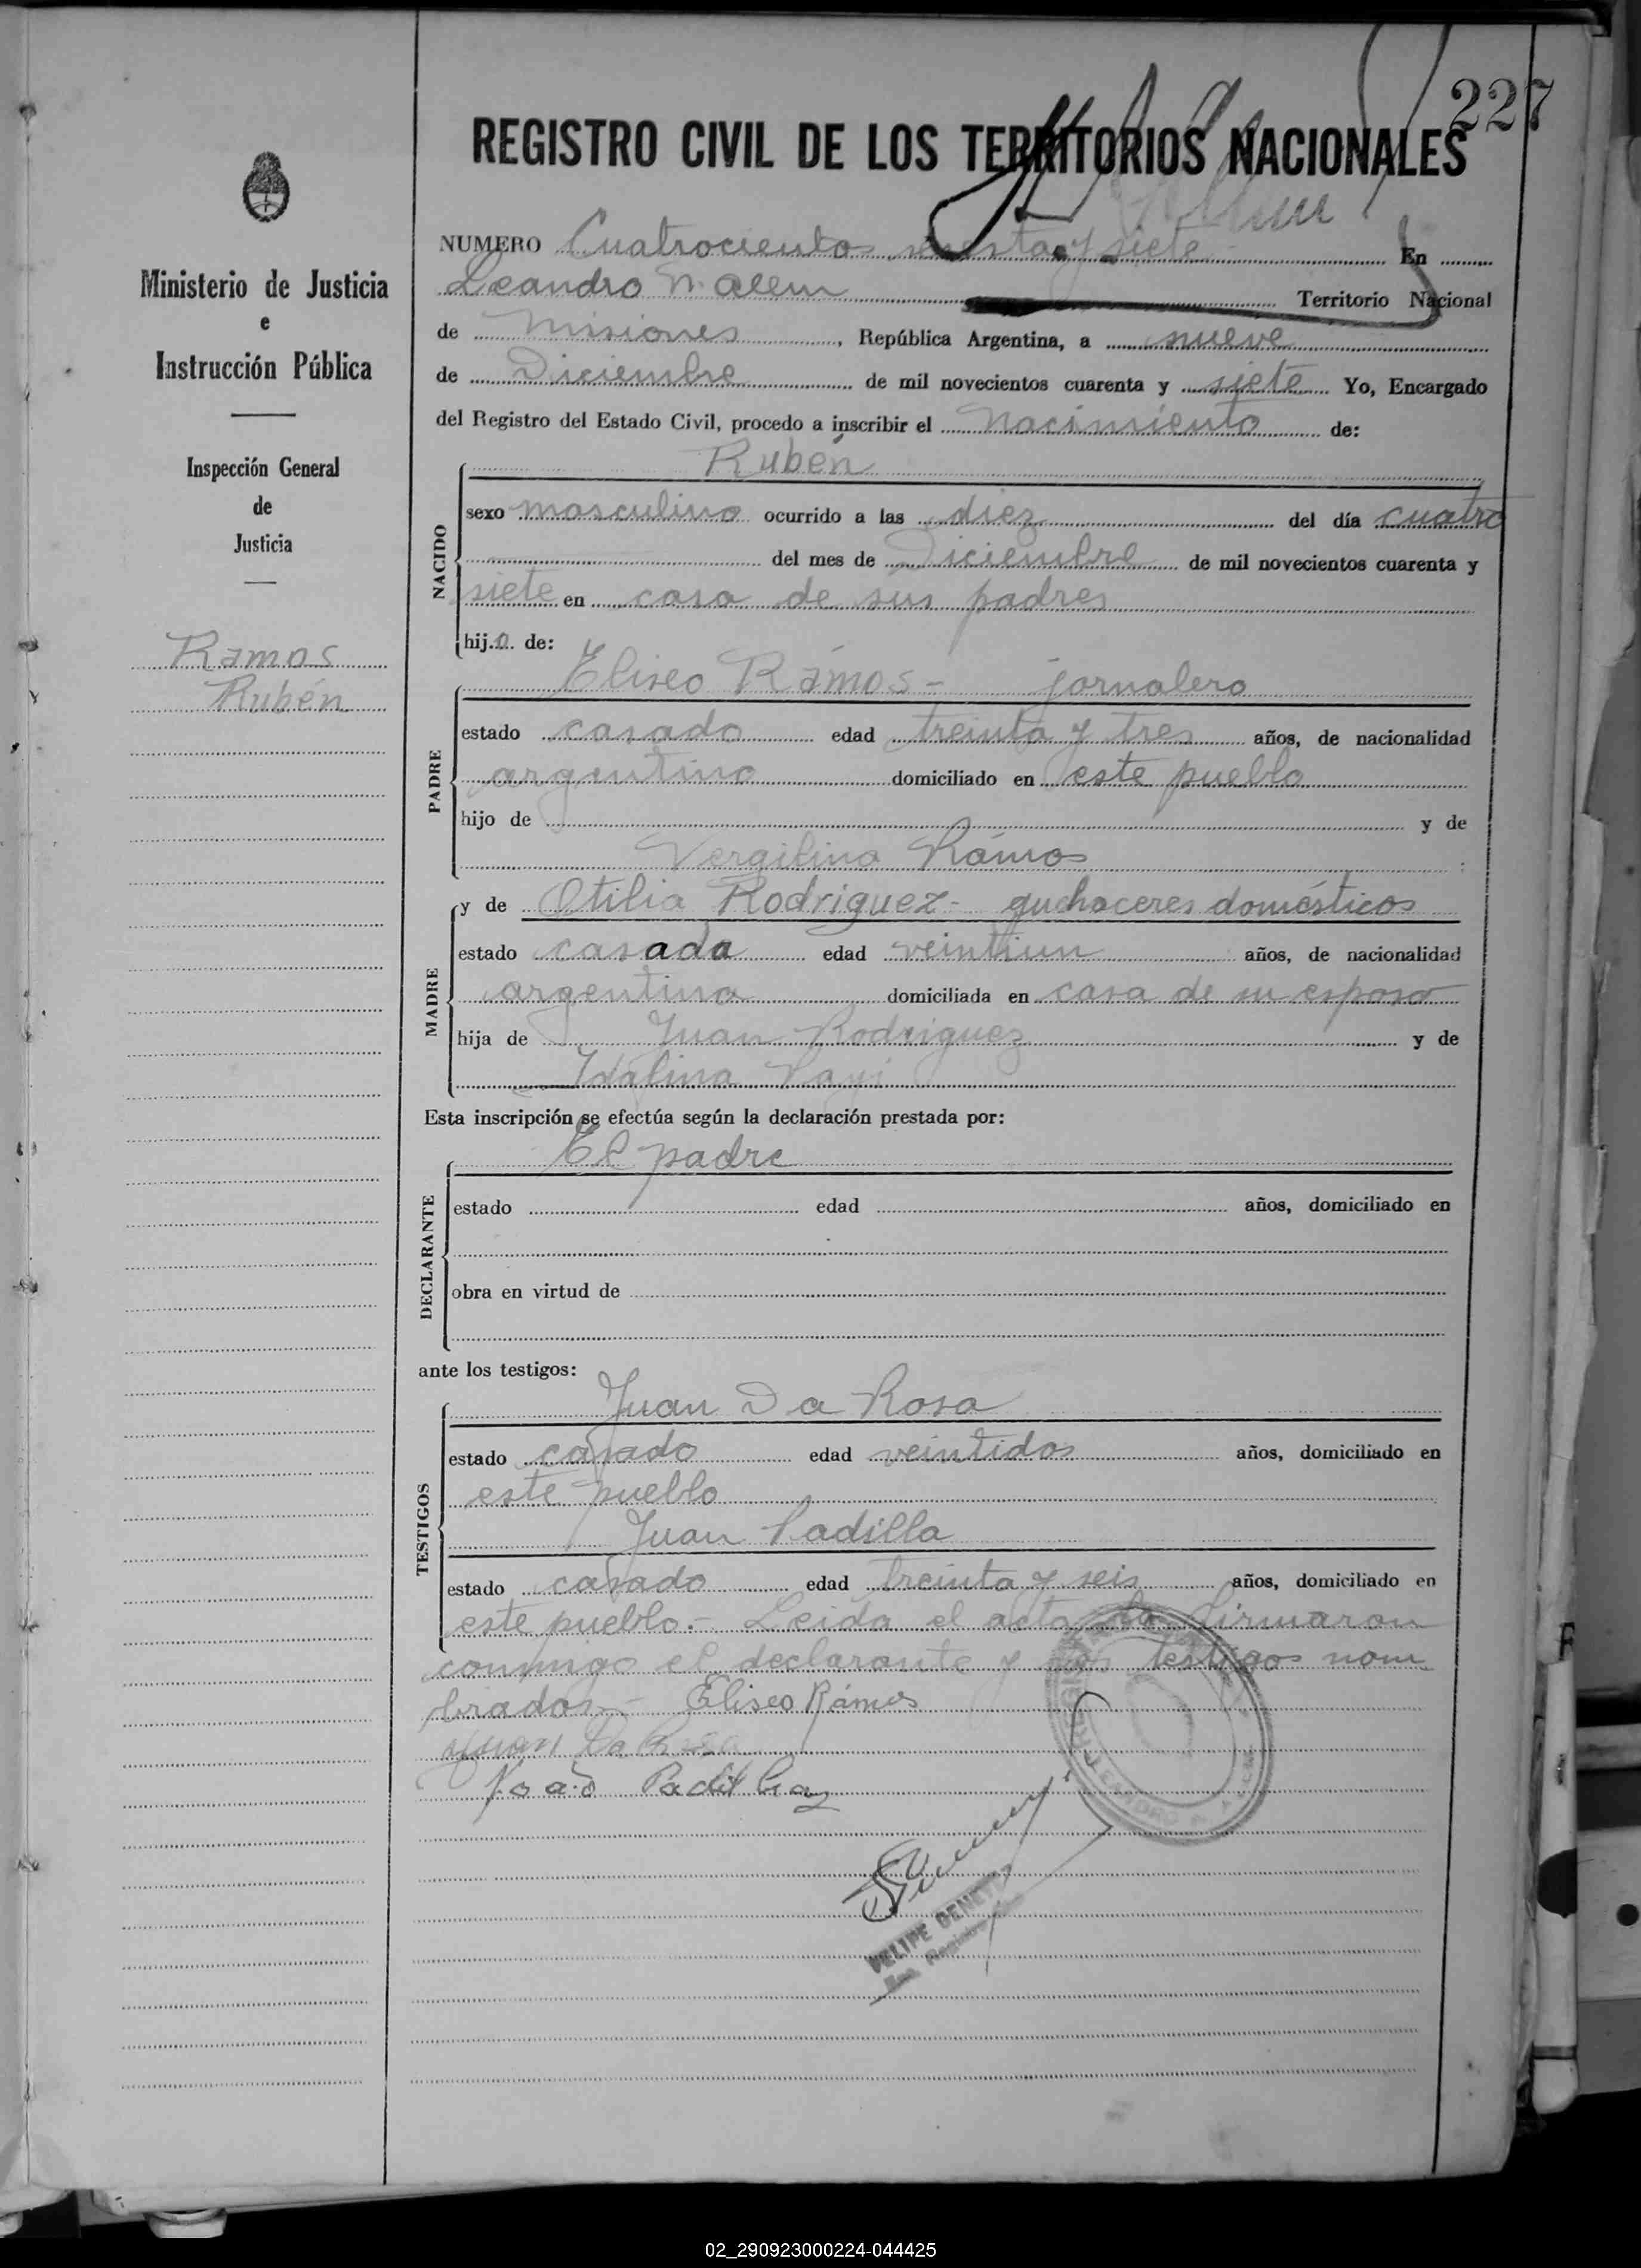 227
REGISTRO CIVIL DE LOS TERRITORIOS NACIONALES
NUMERO Cuatrocientos y siete En
Leandro N. Alem Territorio Nacional
de Misiones, República Argentina, a nueve
de Diciembre de mil novecientos cuarenta y siete Yo, Encargado
del Registro del Estado Civil, procedo a inscribir el nacimiento de:
Ministerio de Justicia
e
Instrucción Pública
Inspección General
de
Justicia
Ramos
Rubén
NACIDO
Rubén
sexo masculino ocurrido a las diez del día cuatro
del mes de Diciembre de mil novecientos cuarenta y
siete en casa de sus padres
hij.o. de:
PADRE
Eliseo Rámos - jornalero
estado casado edad treinta y tres años, de nacionalidad
argentino domiciliado en este pueblo
hijo de y de
Vergilina Rámos
MADRE
y de Otilia Rodriguez - quehaceres domésticos
estado casada edad veintiun años, de nacionalidad
argentina domiciliada en casa de su esposo
hija de Juan Rodriguez y de
Idalina
Esta inscripción se efectúa según la declaración prestada por:
DECLARANTE
El padre
estado edad años, domiciliado en
obra en virtud de
ante los testigos:
TESTIGOS
Juan Da Rosa
estado casado edad veintidos años, domiciliado en
este pueblo
Juan Padilla
estado casado edad treinta y seis años, domiciliado en
este pueblo.- Leida el acta la firmaron
conmigo el declarante y los testigos nom
brados.- Eliseo Rámos
Juan Da Rosa
Joaõ Padilha
FELIPE
02_290923000224-044425